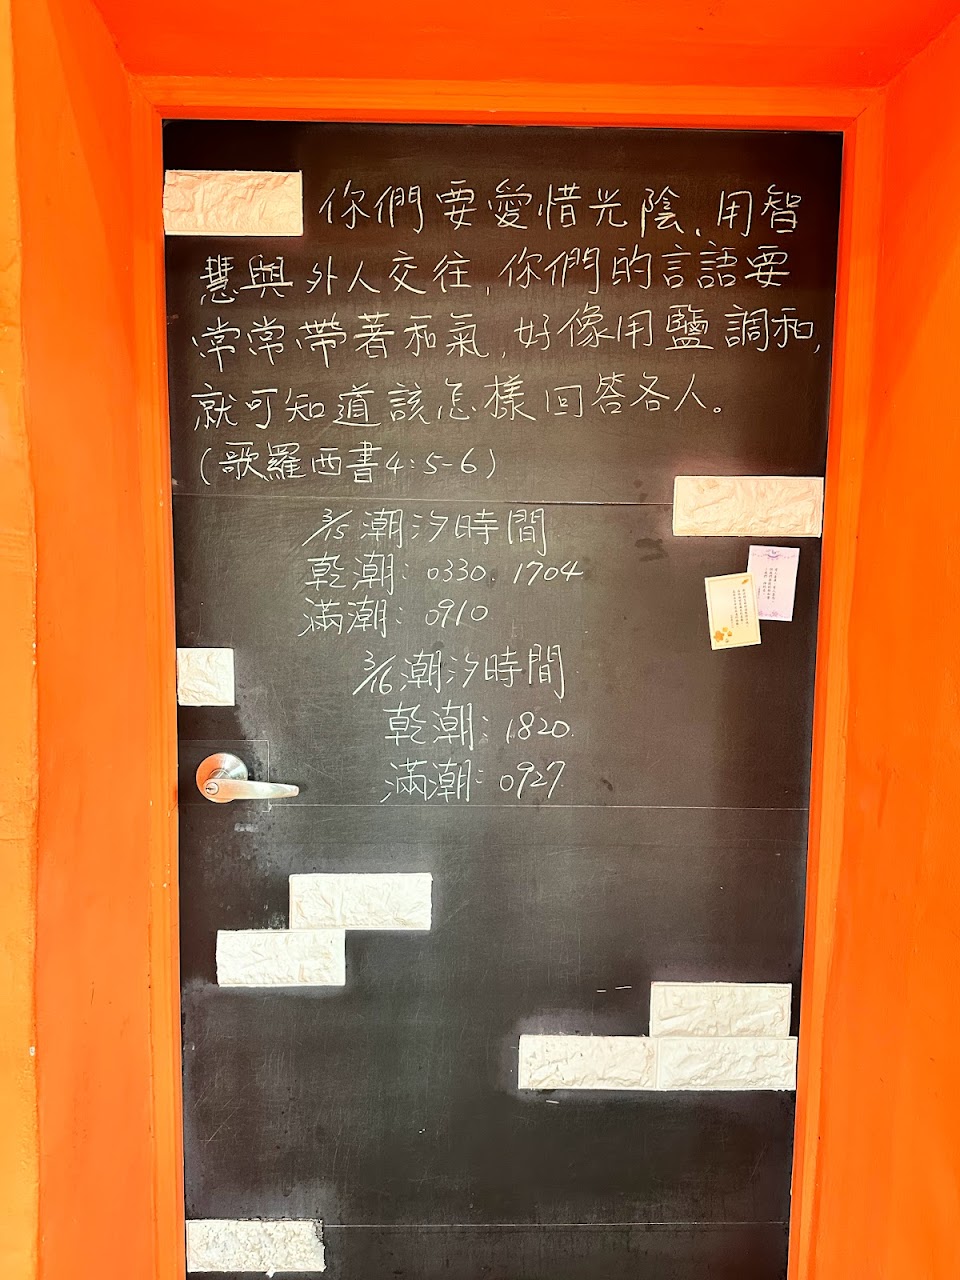 你們要愛惜光陰,用智
慧與外人交往,你們的言語要
常常帶著和氣,好像用鹽調和,
就可知道該怎樣回答各人。
(歌羅西書4:5-6)
3/15潮汐時間
乾潮:0330. 1704
滿潮:0910
3/16潮汐時間
乾潮:1820.
滿潮:0927